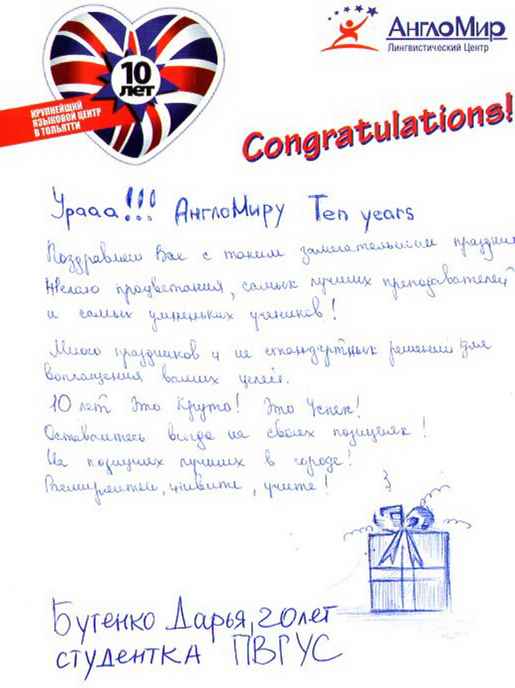 10
ЛЕТ
КРУПНЕЙШИЙ
ЯЗЫКОВОЙ ЦЕНТР
В ТОЛЬЯТТИ
АнглоМир
Лингвистический Центр
Congratulations!
Урааа!!! АнглоМиру Ten years
Поздравляю Вас с таким замечательным праздни
Желаю процветания, самых лучших преподавателей
и самых умненьких учеников!
Много праздников и не стандартных решений для
воплощения ваших целей.
10 лет Это Круто! Это Успех!
Оставайтесь всегда на своих позициях!
На позициях лучших в городе!
живите, учите!
Бутенко Дарья, 20 лет
студентка ПВГУС